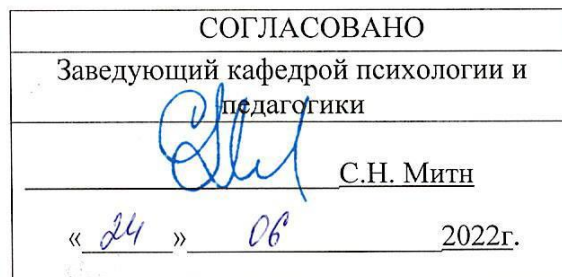 СОГЛАСОВАНО
Заведующий кафедрой психологии и
педагогики
С.Н. Митн
« 24 » 06 2022г.